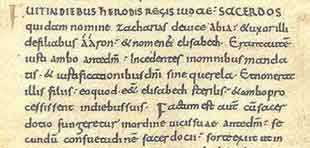 FUIT IN DIEBUS hERODIS REGIS IUDAE· SACERDOS
quidam nomine zacharias deuice abia· & uxor illi
defiliabus ááron· & nomen ei elisabeth. Erantautem
iusti ambo antedm̄· Incedentes inomnibus manda
tis· & iustificationibusdnī sine querela. Etnonerat
illis filius· eoquod ess& elisabeth sterilis· & ambo pro
cessissent indiebussuis· Factum est aut̄ cū sacer
dotio fungeretur inordine uicissuae antedm̄· se
cundū consuetudinē sacerdotii· sorte exiit ut in